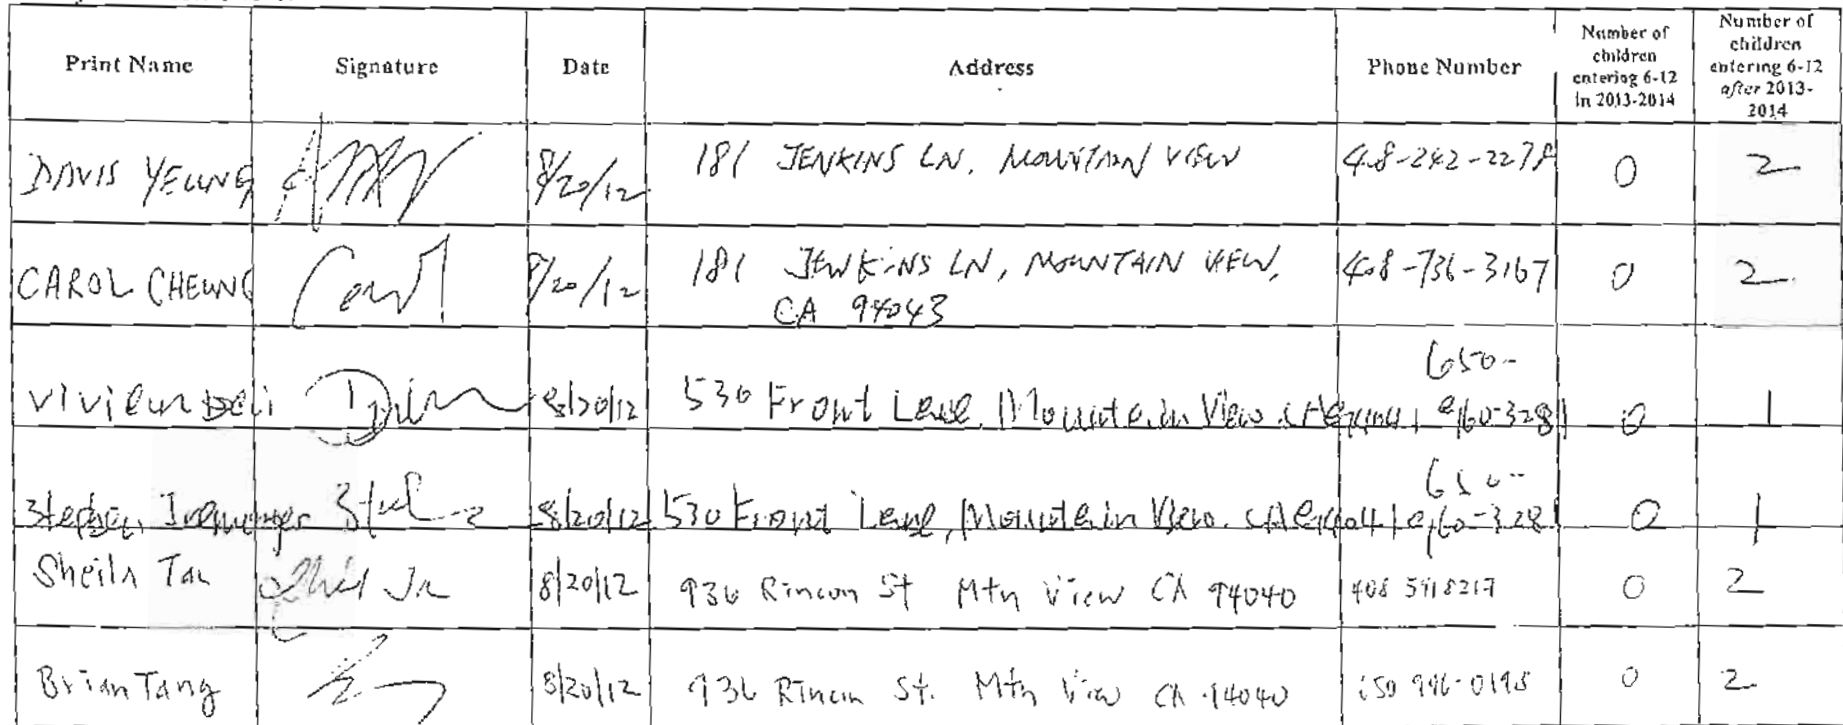 Print Name Signature Date Address Phone Number Number of children entering 6-12 in 2013-2014 Number of children entering 6-12 after 2013-2014
DAVIS YEUNG 8/20/12 181 JENKINS LN, MOUNTAIN VIEW 408-242-2278 0 2
CAROL CHEUNG Carol 8/20/12 181 JENKINS LN, MOUNTAIN VIEW, 408-736-3167 0 2
CA 94043
650-
8/20/12 530 Front Lane, Mountain View, CA 94041 0 1
650-
Stephen 8/20/12 530 Front Lane, Mountain View, CA 94041 0 1
Sheila Tan 8/20/12 936 Rincon St Mtn View CA 94040 408 5918217 0 2
Brian Tang 8/20/12 936 Rincon St. Mtn View CA 94040 0 2